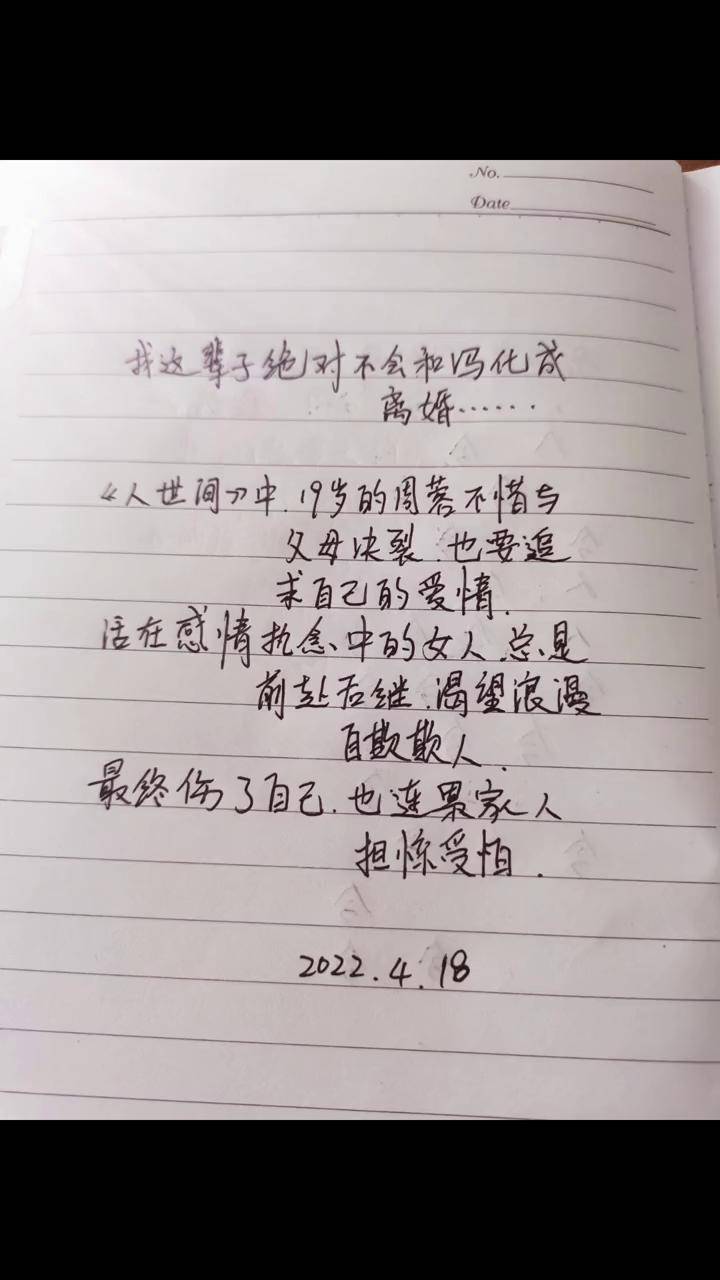 No.
Date
我这辈子绝对不会和冯化成
离婚……
《人世间》中.19岁的周蓉不惜与
父母决裂.也要追
求自己的爱情.
活在感情执念中的女人.总是
前赴后继.渴望浪漫
自欺欺人.
最终伤了自己.也连累家人
担惊受怕.
2022.4.18